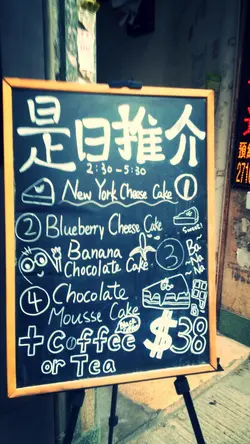 是日推介
2:30-5:30
New York Cheese Cake ①
② Blueberry Cheese Cake
Sweet!
Banana
Chocolate Cake ③ Ba
~Na
~Na
④ Chocolate
Mousse Cake
+Coffee $38
or Tea
271